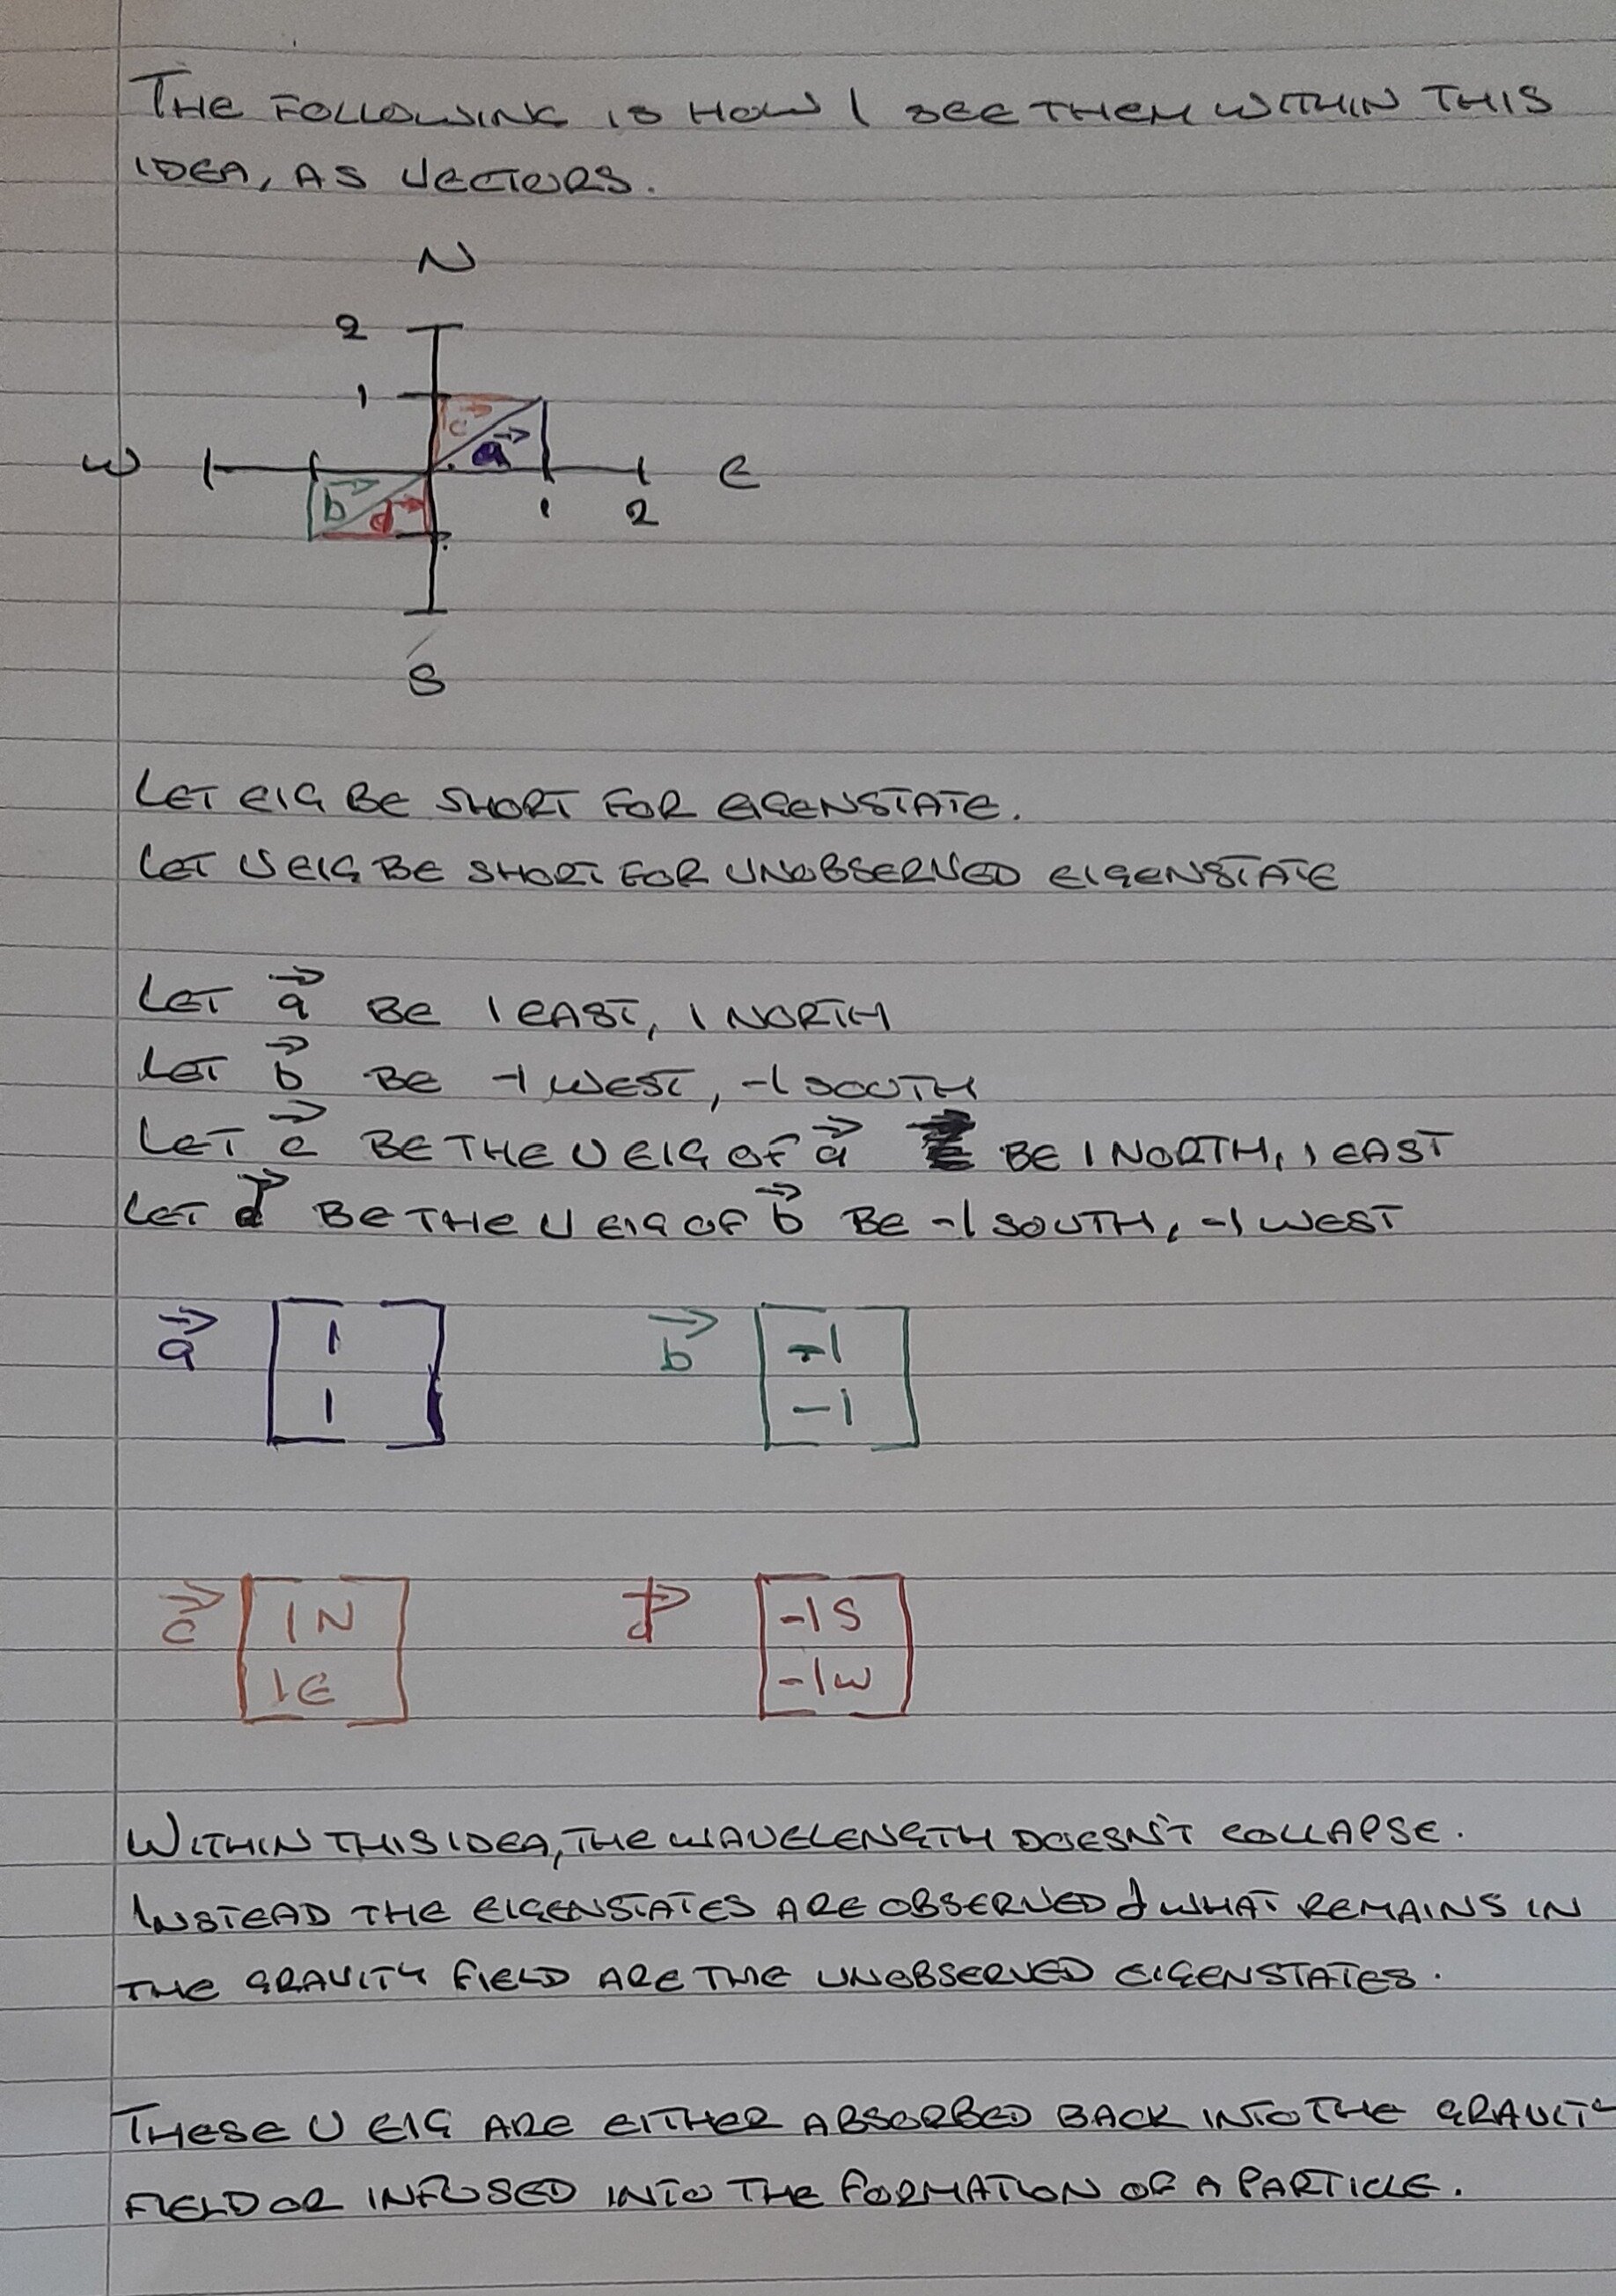 THE FOLLOWING IS HOW I SEE THEM WITHIN THIS
IDEA, AS VECTORS.
N
2
1
c
a
W
E
b
d
1
2
S
LET EIG BE SHORT FOR EIGENSTATE.
LET U EIG BE SHORT FOR UNOBSERVED EIGENSTATE
LET a BE 1 EAST, 1 NORTH
LET b BE -1 WEST, -1 SOUTH
LET c BE THE U EIG OF a BE 1 NORTH, 1 EAST
LET d BE THE U EIG OF b BE -1 SOUTH, -1 WEST
a 1 b -1
1 -1
c 1N d -1S
1E -1W
WITHIN THIS IDEA, THE WAVELENGTH DOESN'T COLLAPSE.
INSTEAD THE EIGENSTATES ARE OBSERVED & WHAT REMAINS IN
THE GRAVITY FIELD ARE THE UNOBSERVED EIGENSTATES.
THESE U EIG ARE EITHER ABSORBED BACK INTO THE GRAVITY
FIELD OR INFUSED INTO THE FORMATION OF A PARTICLE.